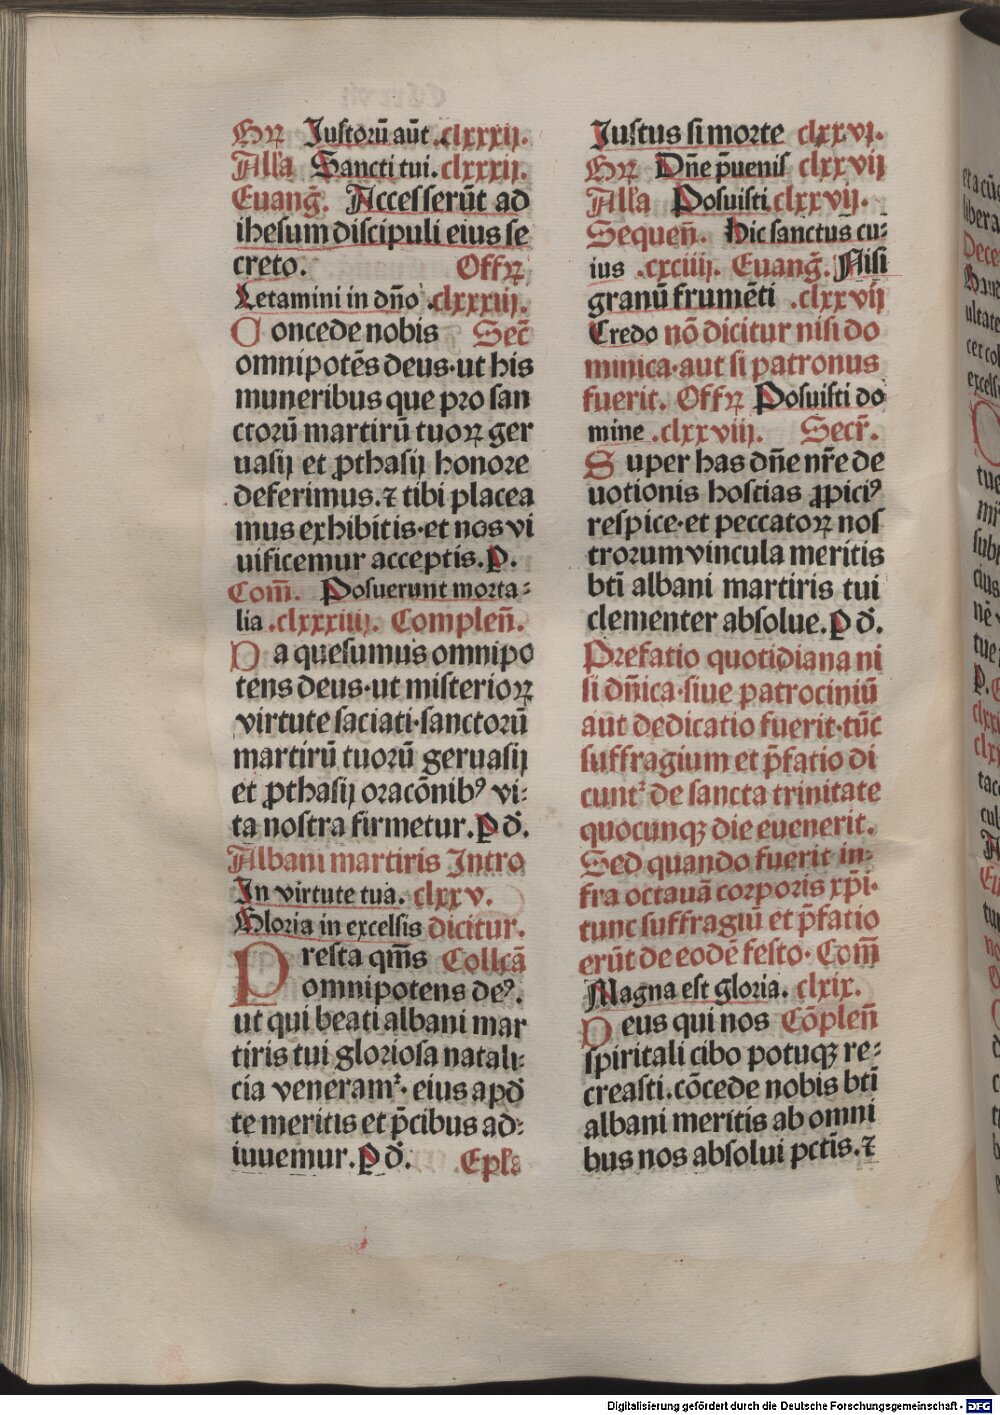 Gꝛ Iustorū aūt .clxxxij.
Alľa Sancti tui. clxxxij.
Euang̃. Accesserūt ad
ihesum discipuli eius se
creto. Offꝝ
Letamini in dño .clxxxiij.
Concede nobis Secr̃
omnipotēs deus·ut his
muneribus que pro san
ctorū martirū tuoꝝ ger
uasij et ꝓthasij honore
deferimus.⁊ tibi placea
mus exhibitis·et nos vi
uificemur acceptis. P.
Com̃. Posuerunt morta⸗
lia .clxxxiiij. Compleñ.
Da quesumus omnipo
tens deus·ut misterioꝝ
virtute saciati·sanctorū
martirū tuorū geruasij
et ꝓthasij oracōnibꝰ vi⸗
ta nostra firmetur. P d̃.
Albani martiris Intro
In virtute tua. clxxv.
Gloria in excelsis dicitur.
Presta qm̃s Collcā
omnipotens deꝰ.
ut qui beati albani mar
tiris tui gloriosa natali⸗
cia veneramᷣ· eius apd̃
te meritis et p̃cibus ad⸗
iuuemur. P d̃. Epľa
Iustus si morte clxxvj.
Gꝛ Dñe p̃uenis clxxvij
Alľa Posuisti clxxvij.
Sequeñ. Hic sanctus cu⸗
ius .cxciiij. Euang̃. Nisi
granū frumēti .clxxvij
Credo nō dicitur nisi do
minica·aut si patronus
fuerit. Offꝝ Posuisti do
mine .clxxviij. Secr̃.
Super has dñe nr̃e de
uotionis hostias ꝓpiciꝰ
respice·et peccatoꝝ nos
trorum vincula meritis
bti̅ albani martiris tui
clementer absolue. P d̃.
Prefatio quotidiana ni
si dñica·siue patrociniū
aut dedicatio fuerit·tūc
suffragium et p̃fatio di
cuntᷣ de sancta trinitate
quocunqꝫ die euenerit.
Sed quando fuerit in⸗
fra octauā corporis xp̃i·
tunc suffragiū et p̃fatio
erūt de eodē festo· Com̃
Magna est gloria. clxix.
Deus qui nos Cōpleñ
spiritali cibo potuqꝫ re⸗
creasti.cōcede nobis bti̅
albani meritis ab omni
bus nos absolui pctīs.⁊
Digitalisierung gefördert durch die Deutsche Forschungsgemeinschaft - DFG